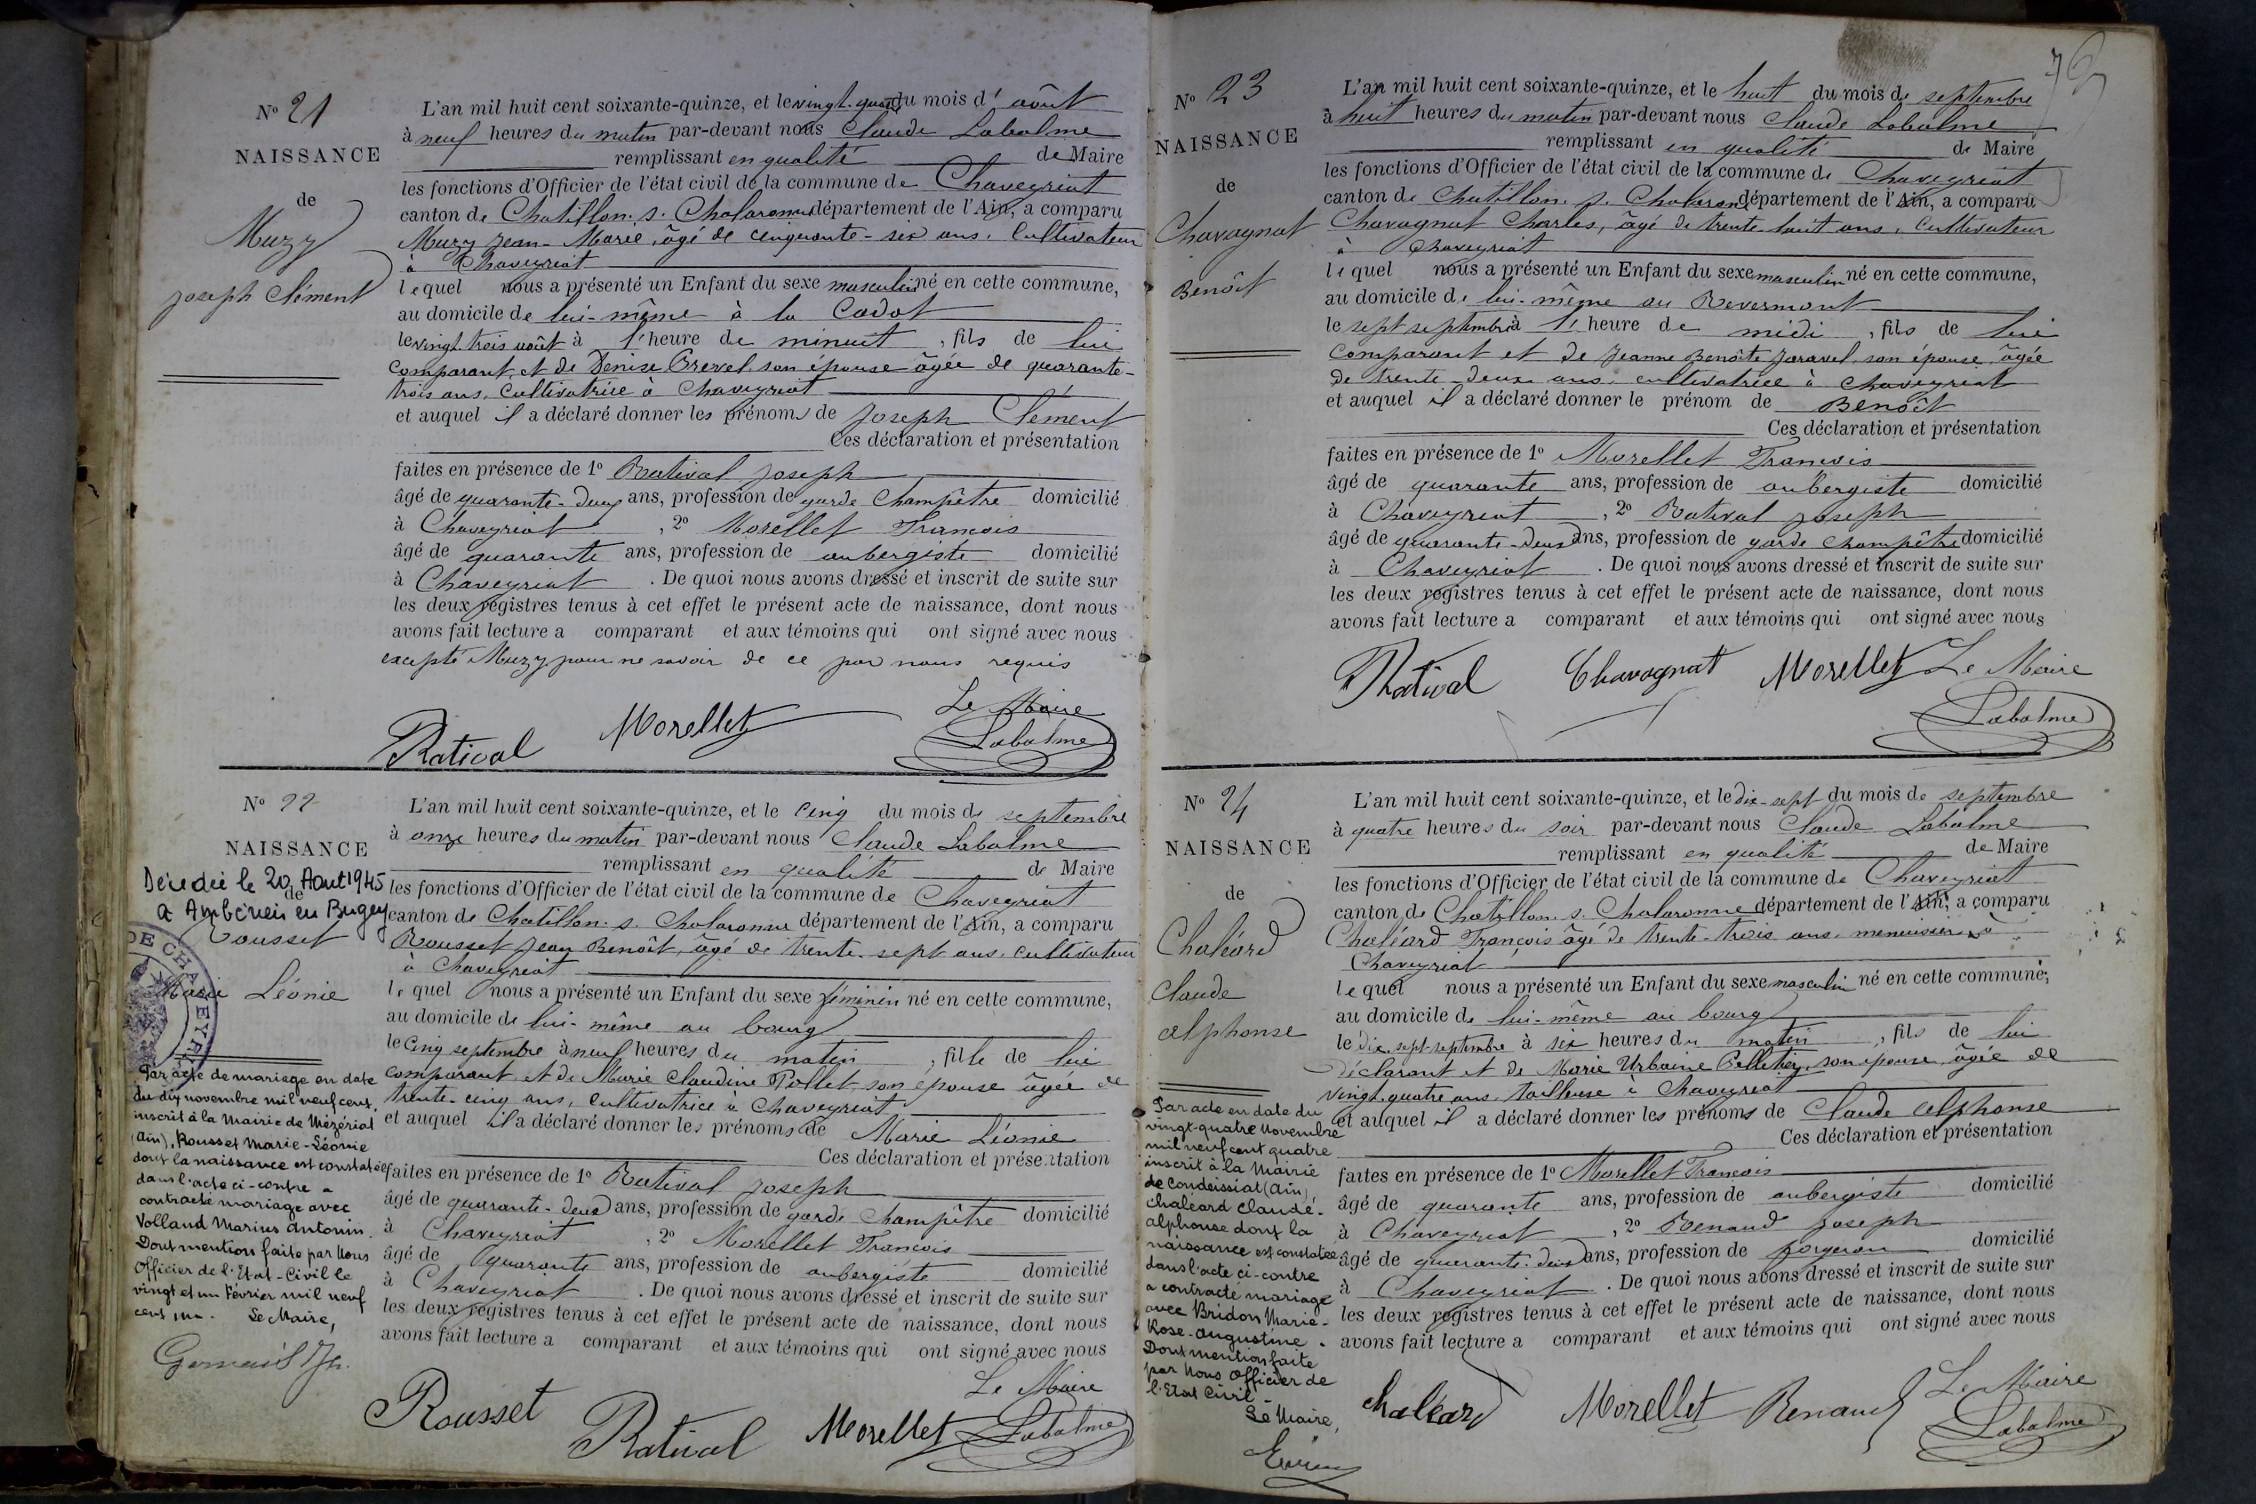 Nº 21
NAISSANCE
de
Muzy
Joseph Clément
L'an mil huit cent soixante-quinze, et le vingt-quatre du mois d'août
à neuf heures du matin par-devant nous Claude Labalme
remplissant en qualité de Maire
les fonctions d'Officier de l'état civil de la commune de Chaveyriat
canton de Chatillon s. Chalaronne département de l'Ain, a comparu
Muzy Jean-Marie, âgé de cinquante-six ans, cultivateur
à Chaveyriat
lequel nous a présenté un Enfant du sexe masculin né en cette commune,
au domicile de lui-même à la Cadot
le vingt trois août à l'heure de minuit, fils de lui
comparant, et de Denise Brevet, son épouse âgée de quarante-
trois ans, cultivatrice à Chaveyriat
et auquel il a déclaré donner les prénoms de Joseph Clément
Ces déclaration et présentation
faites en présence de 1º Ratival Joseph
âgé de quarante-deux ans, profession de garde champêtre domicilié
à Chaveyriat, 2º Morellet François
âgé de quarante ans, profession de aubergiste domicilié
à Chaveyriat. De quoi nous avons dressé et inscrit de suite sur
les deux registres tenus à cet effet le présent acte de naissance, dont nous
avons fait lecture a comparant et aux témoins qui ont signé avec nous
excepté Muzy pour ne savoir de ce par nous requis
Le Maire
Ratival Morellet Labalme
Nº 22
NAISSANCE
de
Décédée le 20 Aout 1945
a Ambérieu en Bugey
Rousset
Marie Léonie
DE CHAVEYRIAT
Par acte de mariage en date
du dix novembre mil neuf cent,
inscrit à la Mairie de Mézériat
(Ain), Rousset Marie-Léonie
dont la naissance est constatée
dans l'acte ci-contre a
contracté mariage avec
Volland Marius Antonin.
Dont mention faite par Nous
Officier de l'Etat-Civil le
vingt et un Février mil neuf
cent un. Le Maire,
L'an mil huit cent soixante-quinze, et le cinq du mois de septembre
à onze heures du matin par-devant nous Claude Labalme
remplissant en qualité de Maire
les fonctions d'Officier de l'état civil de la commune de Chaveyriat
canton de Chatillon s. Chalaronne département de l'Ain, a comparu
Rousset Jean Benoît, âgé de trente-sept ans, cultivateur
à Chaveyriat
lequel nous a présenté un Enfant du sexe féminin né en cette commune,
au domicile de lui-même au bourg
le cinq septembre à neuf heures du matin, fille de lui
comparant et de Marie Claudine Pollet son épouse âgée de
trente-cinq ans, cultivatrice à Chaveyriat
et auquel il a déclaré donner les prénoms de Marie Léonie
Ces déclaration et présentation
faites en présence de 1º Ratival Joseph
âgé de quarante-deux ans, profession de garde-champêtre domicilié
à Chaveyriat, 2º Morellet François
âgé de quarante ans, profession de aubergiste domicilié
à Chaveyriat. De quoi nous avons dressé et inscrit de suite sur
les deux registres tenus à cet effet le présent acte de naissance, dont nous
avons fait lecture a comparant et aux témoins qui ont signé avec nous
Le Maire
Rousset Ratival Morellet Labalme
76
Nº 23
NAISSANCE
de
Chavagnat
Benoît
L'an mil huit cent soixante-quinze, et le huit du mois de septembre
à huit heures du matin par-devant nous Claude Labalme
remplissant en qualité de Maire
les fonctions d'Officier de l'état civil de la commune de Chaveyriat
canton de Chatillon s. Chalaronne département de l'Ain, a comparu
Chavagnat Charles, âgé de trente-huit ans, cultivateur
à Chaveyriat
lequel nous a présenté un Enfant du sexe masculin né en cette commune,
au domicile de lui-même au Revermont
le sept septembre à l'heure de midi, fils de lui
comparant et de Jeanne Benoîte Jaravel son épouse âgée
de trente-deux ans, cultivatrice à Chaveyriat
et auquel il a déclaré donner le prénom de Benoît
Ces déclaration et présentation
faites en présence de 1º Morellet François
âgé de quarante ans, profession de aubergiste domicilié
à Chaveyriat, 2º Ratival Joseph
âgé de quarante-deux ans, profession de garde champêtre domicilié
à Chaveyriat. De quoi nous avons dressé et inscrit de suite sur
les deux registres tenus à cet effet le présent acte de naissance, dont nous
avons fait lecture a comparant et aux témoins qui ont signé avec nous
Ratival Chavagnat Morellet Le Maire
Labalme
Nº 24
NAISSANCE
de
Chaléard
Claude
Alphonse
Par acte en date du
vingt-quatre Novembre
mil neuf cent quatre
inscrit à la Mairie
de Condeissiat (Ain),
Chaléard Claude-
Alphonse dont la
naissance est constatée
dans l'acte ci-contre
a contracté mariage
avec Bridon Marie-
Rose-Augustine.
Dont mention faite
par Nous Officier de
l'Etat Civil
Le Maire,
L'an mil huit cent soixante-quinze, et le dix-sept du mois de septembre
à quatre heures du soir par-devant nous Claude Labalme
remplissant en qualité de Maire
les fonctions d'Officier de l'état civil de la commune de Chaveyriat
canton de Chatillon s. Chalaronne département de l'Ain, a comparu
Chaléard François âgé de trente-trois ans, menuisier à
Chaveyriat
lequel nous a présenté un Enfant du sexe masculin né en cette commune,
au domicile de lui-même au bourg
le dix-sept septembre à six heures du matin, fils de lui
déclarant et de Marie Urbaine Pelletier son épouse, âgée de
vingt-quatre ans, tailleuse à Chaveyriat
et auquel il a déclaré donner les prénoms de Claude Alphonse
Ces déclaration et présentation
faites en présence de 1º Morellet François
âgé de quarante ans, profession de aubergiste domicilié
à Chaveyriat, 2º Renaud Joseph
âgé de quarante-deux ans, profession de forgeron domicilié
à Chaveyriat. De quoi nous avons dressé et inscrit de suite sur
les deux registres tenus à cet effet le présent acte de naissance, dont nous
avons fait lecture a comparant et aux témoins qui ont signé avec nous
Le Maire
Chaléard Morellet Renaud Labalme